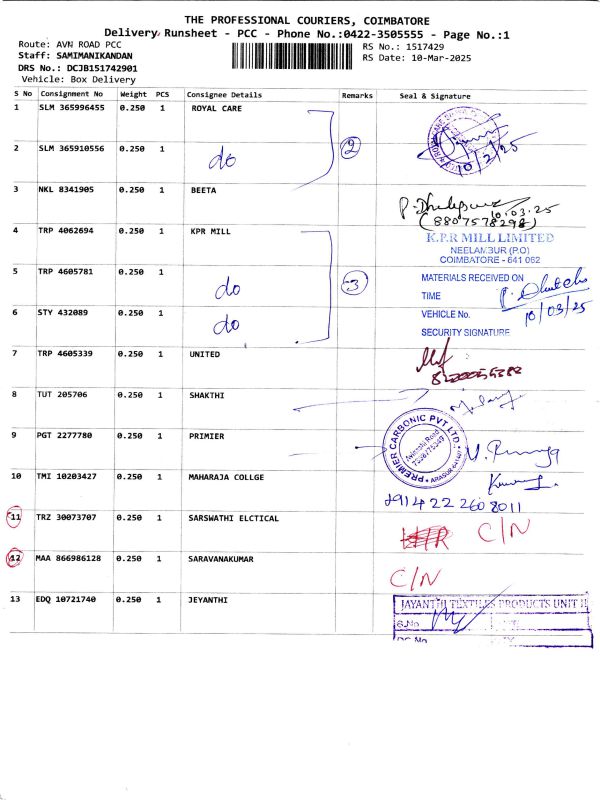 THE PROFESSIONAL COURIERS, COIMBATORE
Delivery Runsheet - PCC - Phone No.:0422-3505555 - Page No.:1
Route: AVN ROAD PCC
RS No.: 1517429
Staff: SAMIMANIKANDAN
RS Date: 10-Mar-2025
DRS No.: DCJB151742901
Vehicle: Box Delivery
S No Consignment No Weight PCS Consignee Details Remarks Seal & Signature
1 SLM 365996455 0.250 1 ROYAL CARE
2 SLM 365910556 0.250 1 do 2
10/2/25
3 NKL 8341905 0.250 1 BEETA
10.03.25
(8807578298)
4 TRP 4062694 0.250 1 KPR MILL
K.P.R MILL LIMITED
NEELAMBUR (P.O)
COIMBATORE - 641 062
5 TRP 4605781 0.250 1 do 3
MATERIALS RECEIVED ON
TIME
6 STY 432089 0.250 1 do
VEHICLE No. 10/03/25
SECURITY SIGNATURE
7 TRP 4605339 0.250 1 UNITED
8 TUT 205706 0.250 1 SHAKTHI
9 PGT 2277780 0.250 1 PRIMIER
PREMIER CARBONIC PVT LTD.
10 TMI 10203427 0.250 1 MAHARAJA COLLGE
0914222608011
11 TRZ 30073707 0.250 1 SARSWATHI ELCTICAL C/N
12 MAA 866986128 0.250 1 SARAVANAKUMAR C/N
13 EDQ 10721740 0.250 1 JEYANTHI
JAYANTHI TEXTILES PRODUCTS UNIT II
S.No